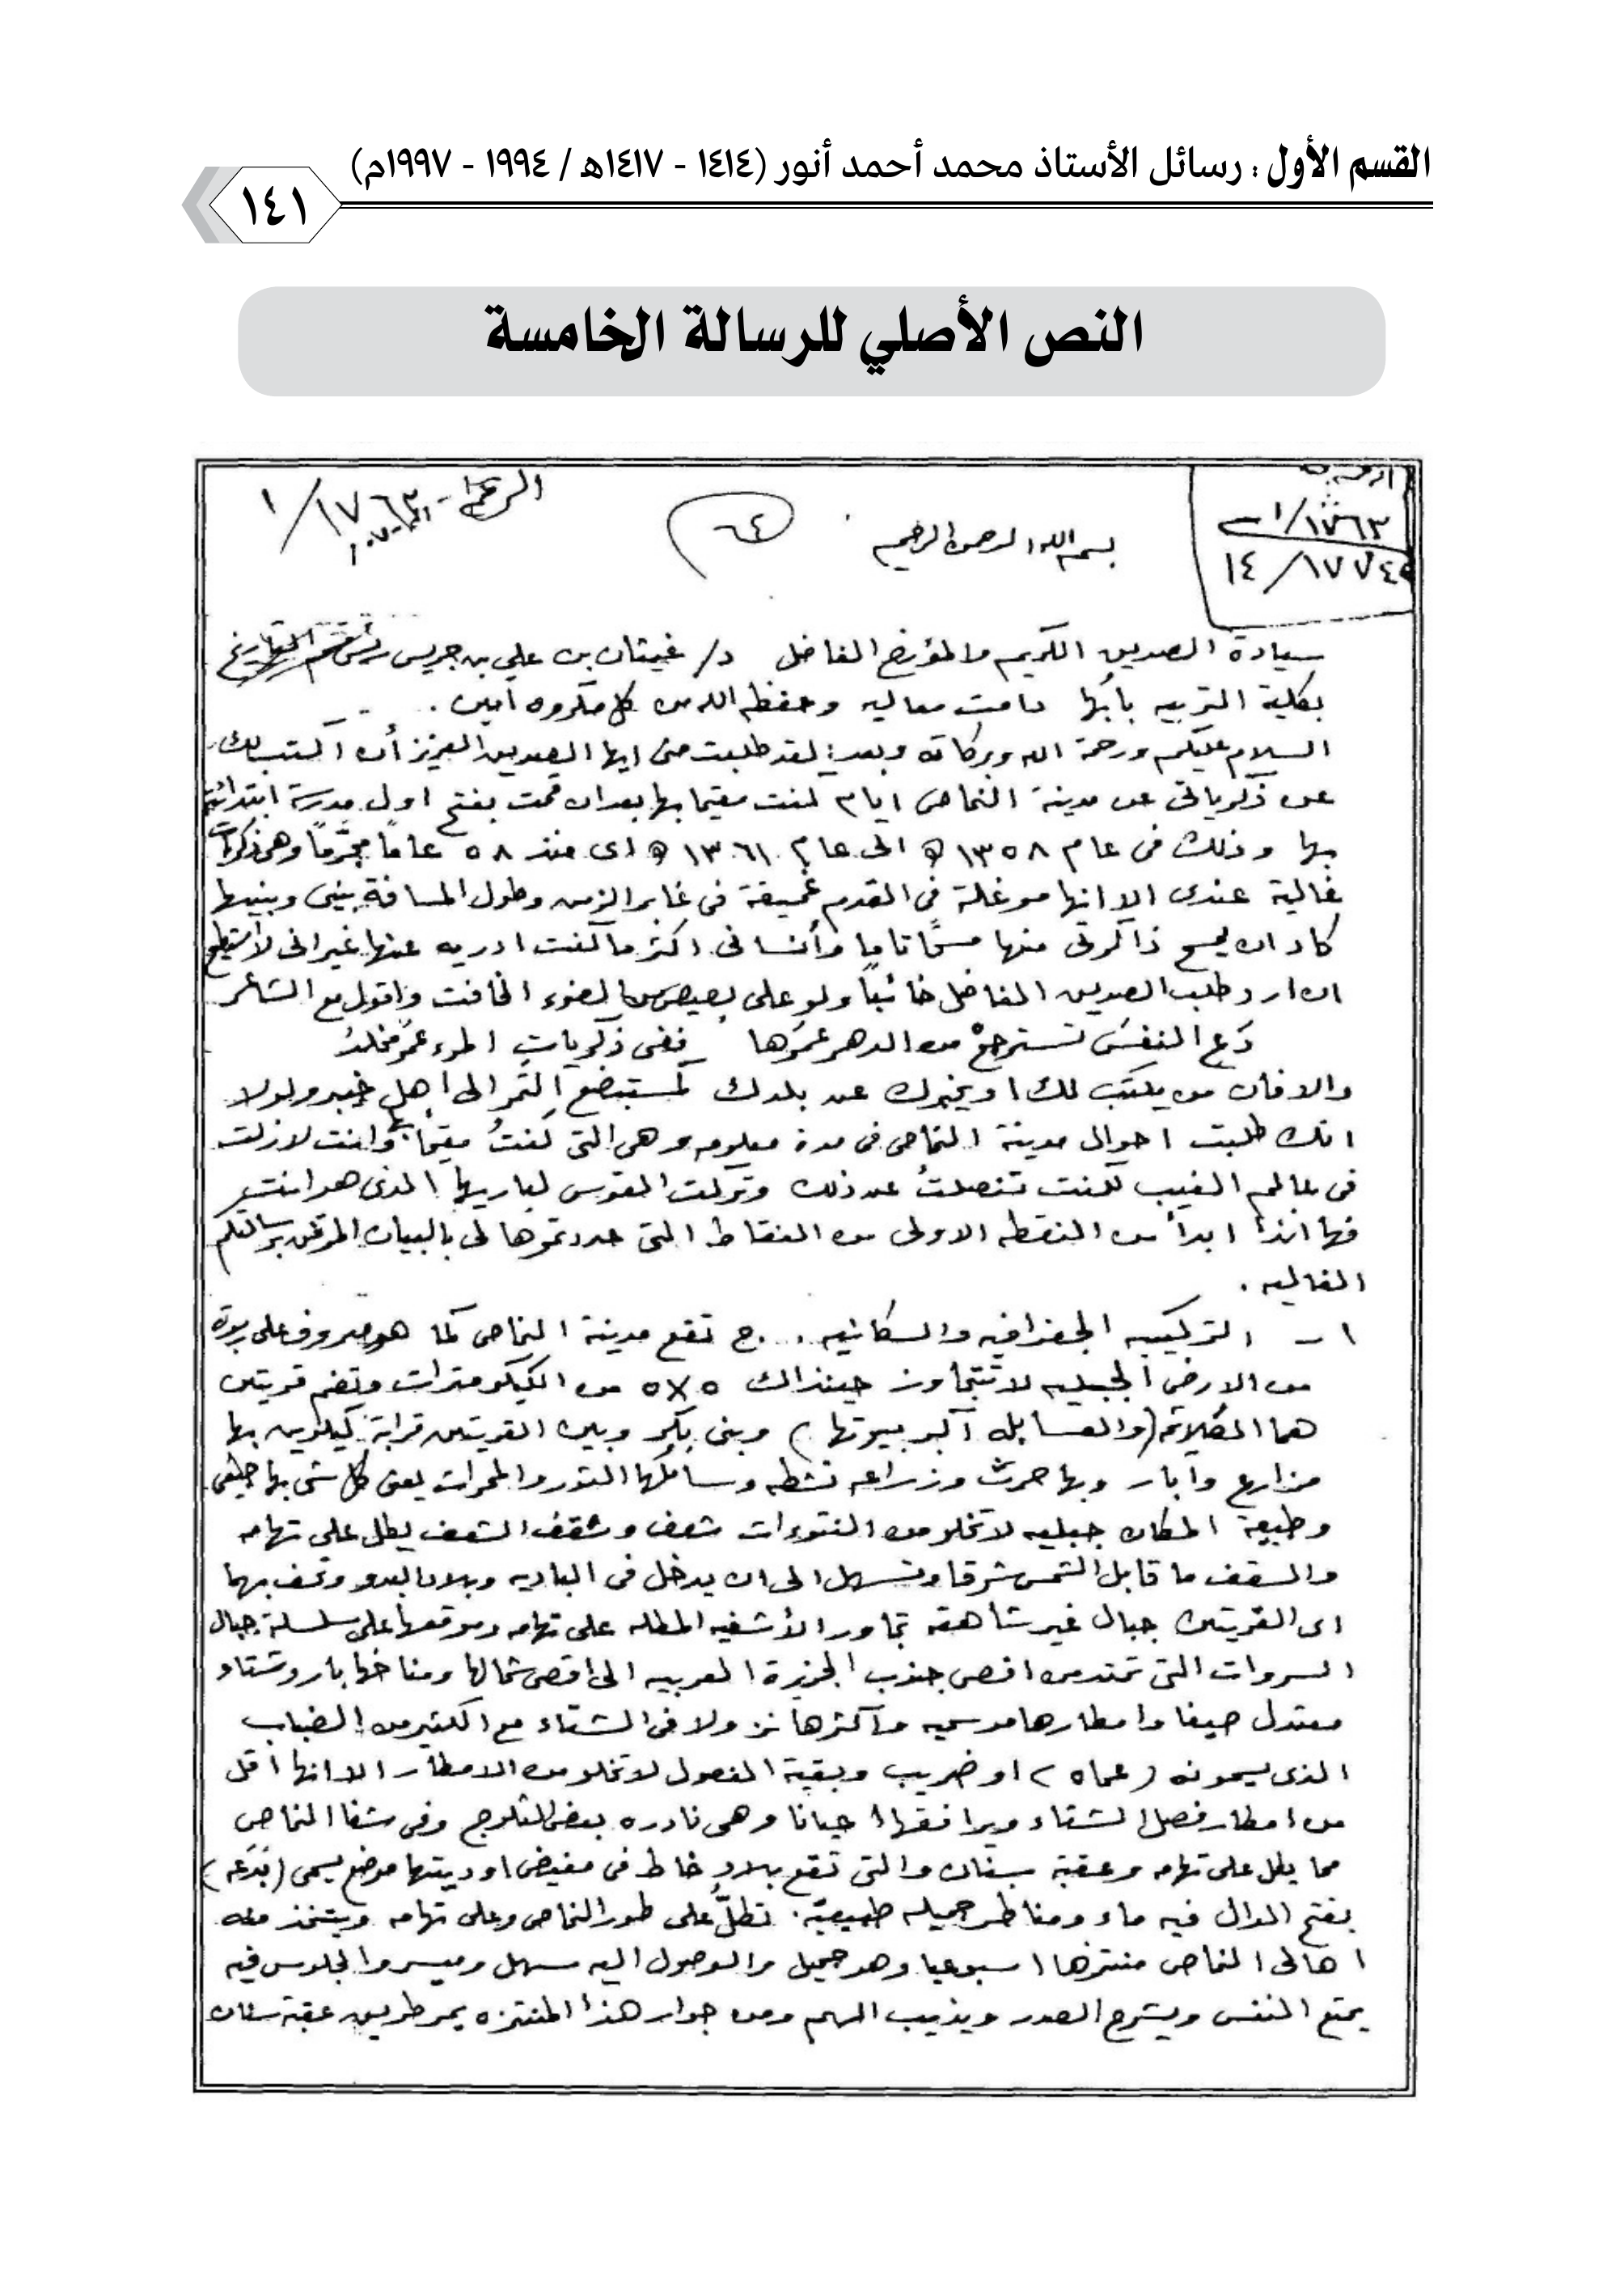 القسم الأول : رسائل الأستاذ محمد أحمد أنور (١٤١٤ - ١٤١٧هـ / ١٩٩٤ - ١٩٩٧م)
١٤١
النص الأصلي للرسالة الخامسة
١/١٧٦٣
١٤/١٧٧٤
بسم الله الرحمن الرحيم
٦٤
١/١٧٦٣
سيادة الصديق الكريم والمؤرخ الفاضل د/ غيثان بن علي بن جريس رئيس قسم التاريخ
بكلية التربيه بأبها دامت معاليه وحفظه الله من كل مكروه آمين .
السلام عليكم ورحمة الله وبركاته وبعد: لقد طلبت منى ايها الصديق العزيز أن اكتب لك
عن ذكرياتى عن مدينة النماص ايام كنت مقيما بها بعد ان قمت بفتح اول مدرسة ابتدائية
بها وذلك فى عام ١٣٥٨ ه الى عام ١٣٦١ ه اى منذ ٥٨ عاماً مجَرَّماً وهى ذكريات
غالية عندى الا انها موغلة فى القدم عميقة فى غابر الزمن وطول المسافة بينى وبينها
كاد ان يمسح ذاكرتى منها مسحًا تاما وأنسانى اكثر ما كنت ادريه عنها غير انى لا استطيع
ان ارد طلب الصديق الفاضل خائباً ولو على بصيص من الضوء الخافت واقول مع الشاعر
دَع النفسَ تسترجعْ من الدهر عمرَها ففى ذكرياتِ المرء عمرٌ مخلدُ
والا فان من يكتب لك او يخبرك عن بلدك كمستبضع التمر الى أهل خيبر ولولا
انك طلبت احوال مدينة النماص فى مدة معلومه وهى التى كنتُ مقيما بها وانت لا زلت
فى عالم الغيب لكنت تنصلتُ عن ذلك وتركت القوس لباريها الذى هو انت
فها انذا ابدأ من النقطه الاولى من النقاط التى حددتموها لى بالبيان المرفق برسالتكم
الغاليه .
١ – التركيبه الجغرافيه والسكانيه ... ج تقع مدينة النماص كما هو معروف على ربوة
من الارض الجبليه لا تتجاوز حينذاك ٥×٥ من الكيلومترات وتضم قريتين
هما (والعسابله اكبر بيوتها) وبنى بكر وبين القريتين قرابة كيلوين بها
مزارع وآبار وبها حرث وزراعه نشطه وسائلها الثور والمحراث يعنى كل شى بها طبيعى
وطبيعة المكان جبليه لا تخلو من النتوءات شعف وشقف الشعف يطل على تهامه
والشقف ما قابل الشمس شرقا وتسهل الى ان يدخل فى الباديه وبلاد البدو وتحف بهما
اى القريتين جبال غير شاهقة تجاور الأشفيه المطله على تهامه وموقعها على سلسلة جبال
السروات التى تمتد من اقصى جنوب الجزيرة العربيه الى اقصى شمالها ومناخها بارد شتاء
معتدل صيفا وامطارها موسميه واكثرها نزولا فى الشتاء مع الكثير من الضباب
الذى يسمونه (عماه) او ضريب وبقية الفصول لا تخلو من الامطار الا انها أقل
من امطار فصل الشتاء ويرافقها احيانا وهى نادره بعض الثلوج وفى شفا النماص
مما يطل على تهامه وعقبة سنان والتى تقع بلاد خاط فى مفيض اوديتها موضع يسمى (بَدَعَه)
بفتح الدال فيه ماء ومناظر جميله طبيعيّة. تطلُّ على طور النماص وعلى تهامه ويتخذ منه
اهالى النماص منتزها اسبوعيا وهو جميل والوصول اليه سهل وميسر والجلوس فيه
يمتع النفس ويشرح الصدر ويذيب الهم ومن جوار هذا المنتزه يمر طريق عقبة سنان